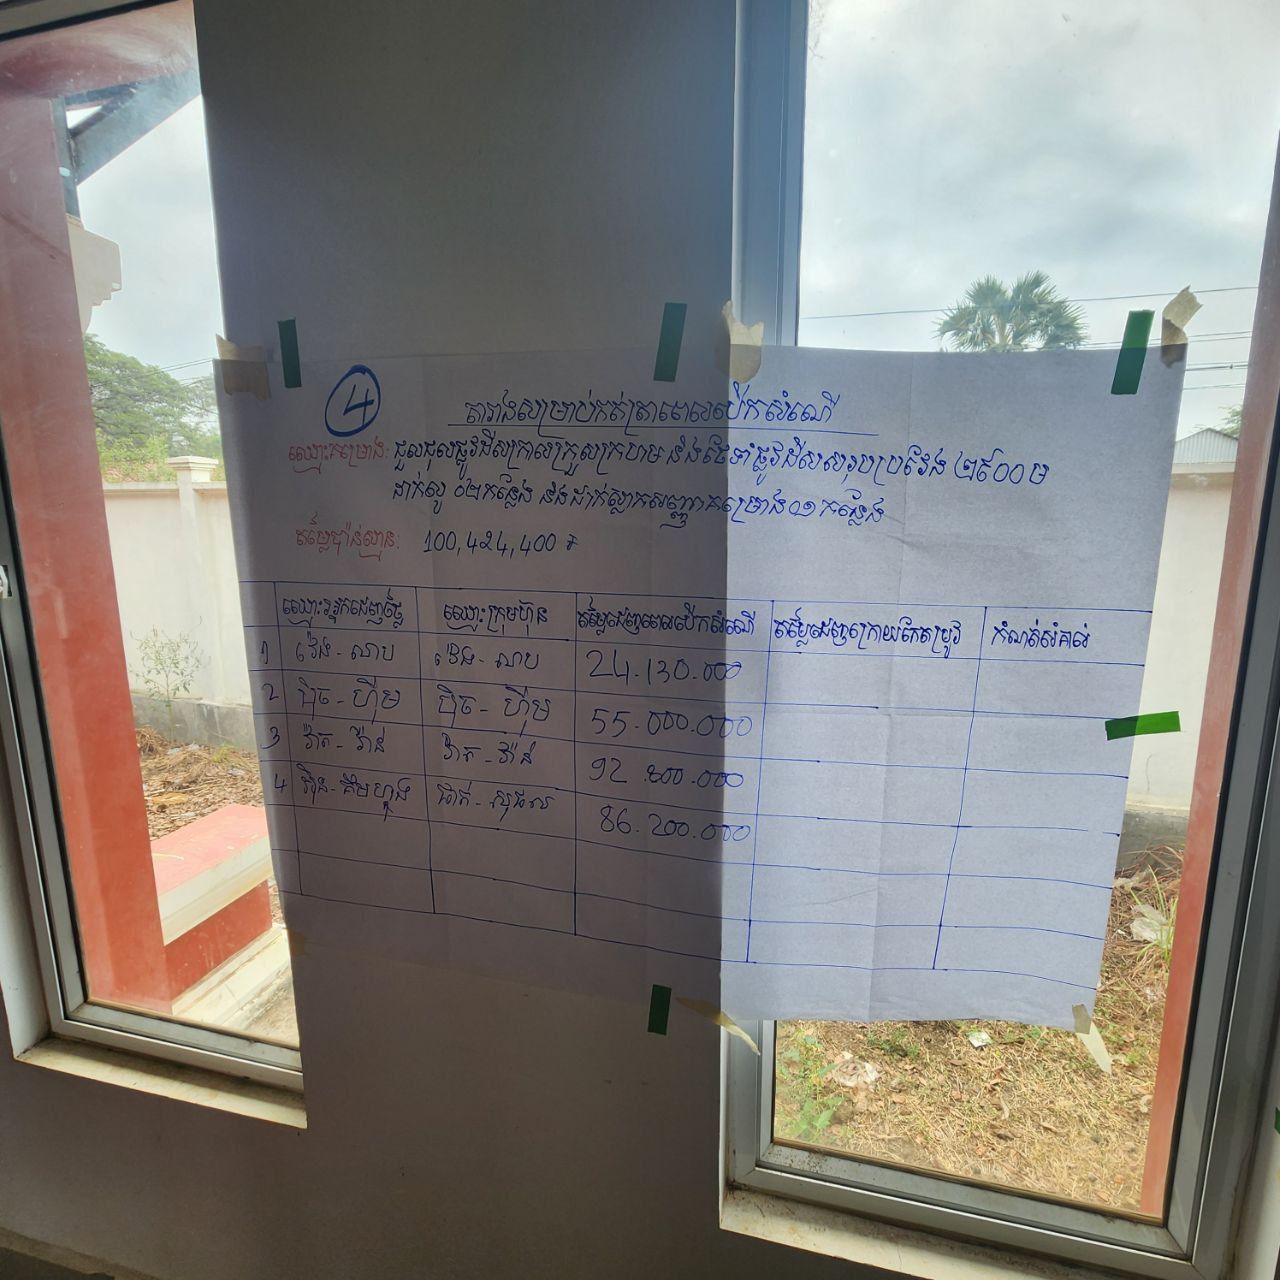 4
តារាងសម្រាប់កត់ត្រាពេលបើកសំណើ
ឈ្មោះគម្រោង: ជួសជុលផ្លូវដីចាក្រាលគ្រួសក្រហម និងថែទាំផ្លូវដីសសរុបប្រវែង ២៩០០ម
ដាក់លូ ០២កន្លែង និងដាក់ស្លាកសញ្ញាគម្រោង០១ កន្លែង
តម្លៃប៉ាន់ស្មាន: 100,424,400 ៛
ឈ្មោះអ្នកដេញថ្លៃ ឈ្មោះក្រុមហ៊ុន តម្លៃដេញពេលបើកសំណើ តម្លៃដេញក្រោយកែតម្រូវ កំណត់សំគាល់
1 វ៉េង - លាប វ៉េង - លាប 24.130.000
2 ប៉ិច - ហ៊ីម ប៉ិច - ហ៊ីម 55.000.000
3 វ៉ាត - វ៉ាន់ វ៉ាត - វ៉ាន់ 92.800.000
4 អ៊ិន - គឹមហួង ផាត់ - សុផល 86.200.000